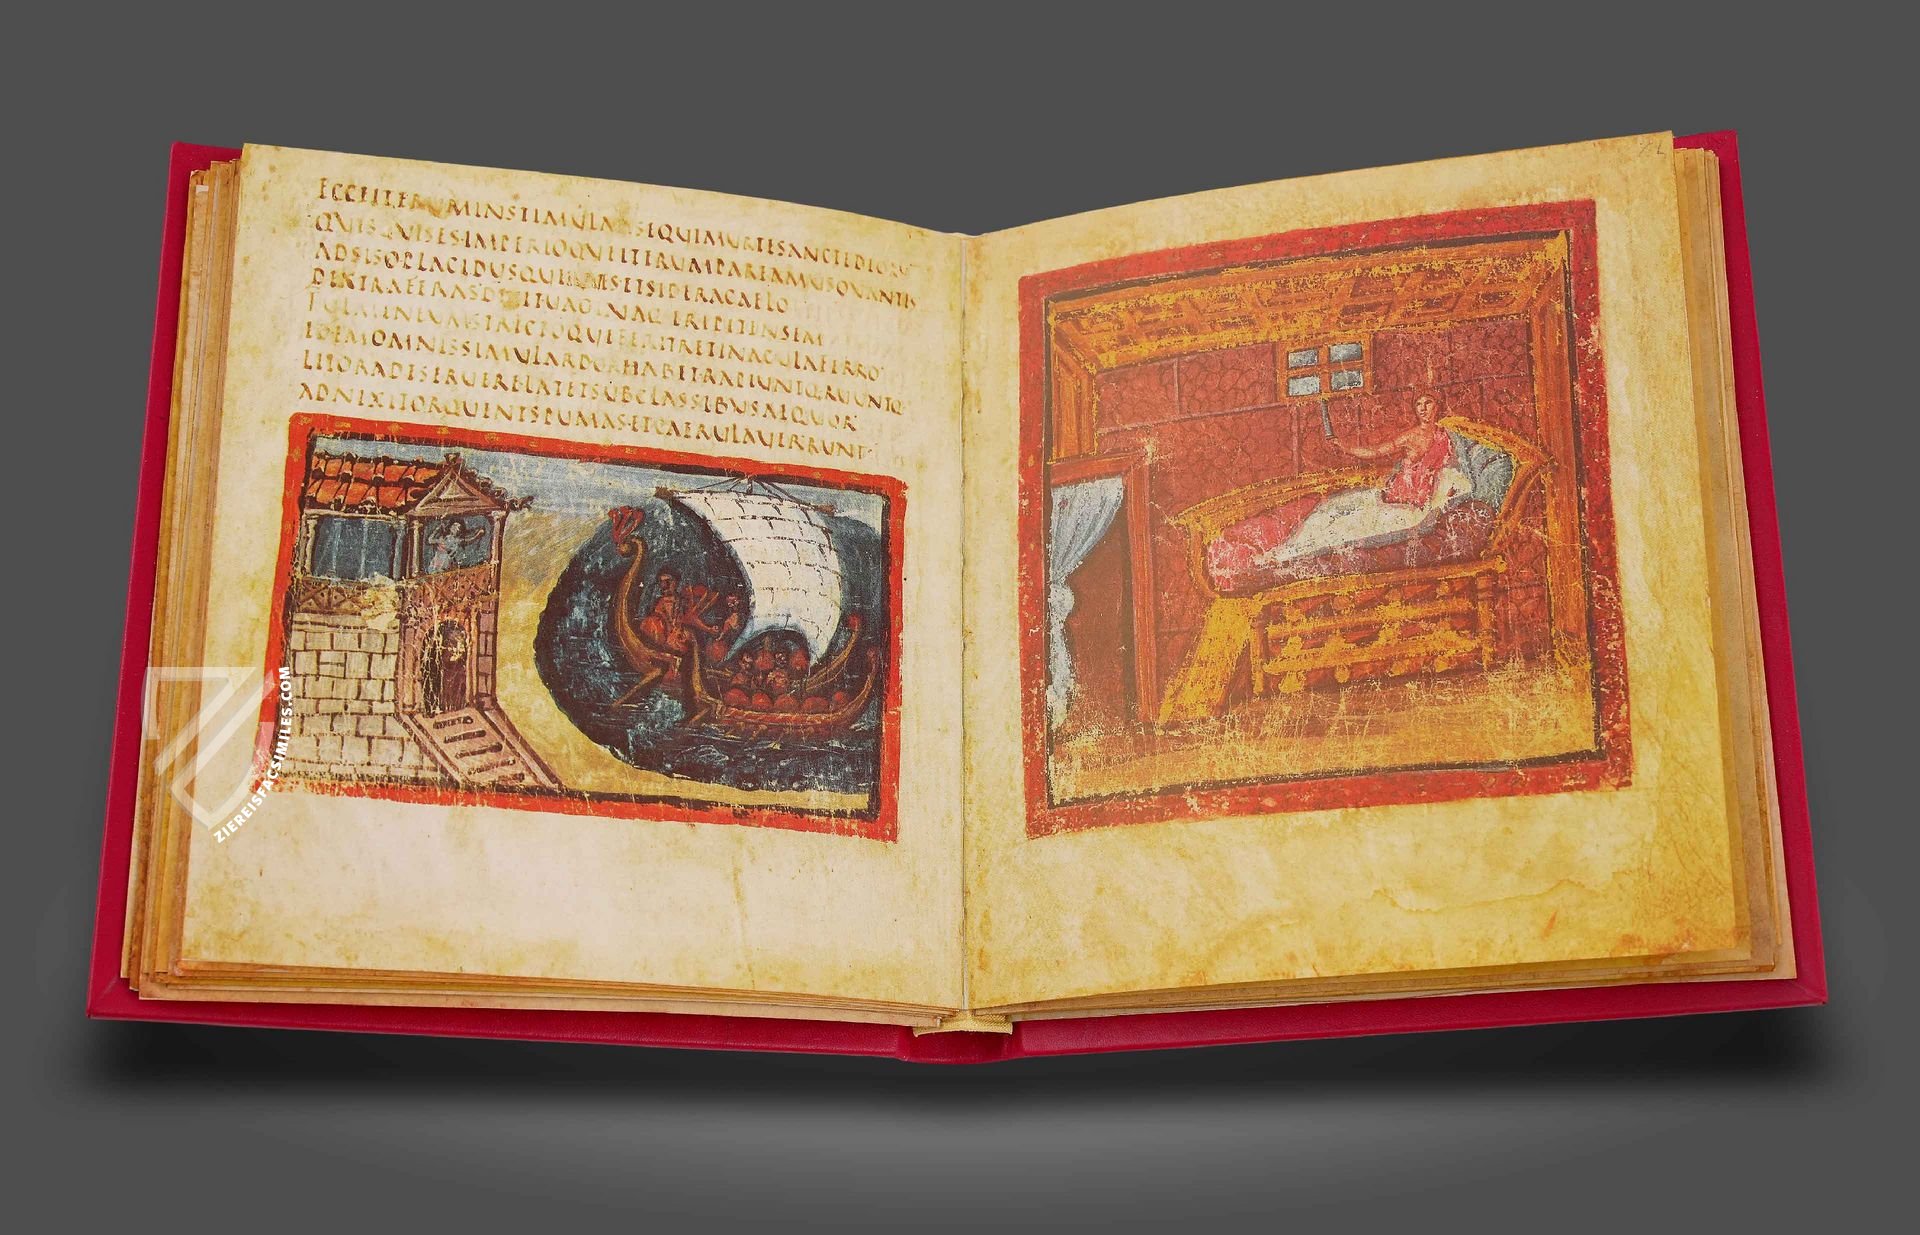 ECCEITERUMINSTIMULATSEQUIMURTESANCTEDEORU
QUISQUISESIMPERIOQUEITERUMPAREAMUSOUANTIS
ADSISOPLACIDUSQUEIUUESETSIDERACAELO
DEXTRAFERASDIXITUAGINAQ·ERIPITENSEM
FULMINEUMSTRICTOQUEFERITRETINACULAFERRO
IDEMOMNISSIMULARDORHABETRAPIUNTQ·RUUNTQ·
LITORADESERUERELATETSUBCLASSIBUSAEQUOR
ADNIXITORQUENTSPUMASETCAERULAUERRUNT
ZIEREISFACSIMILES.COM